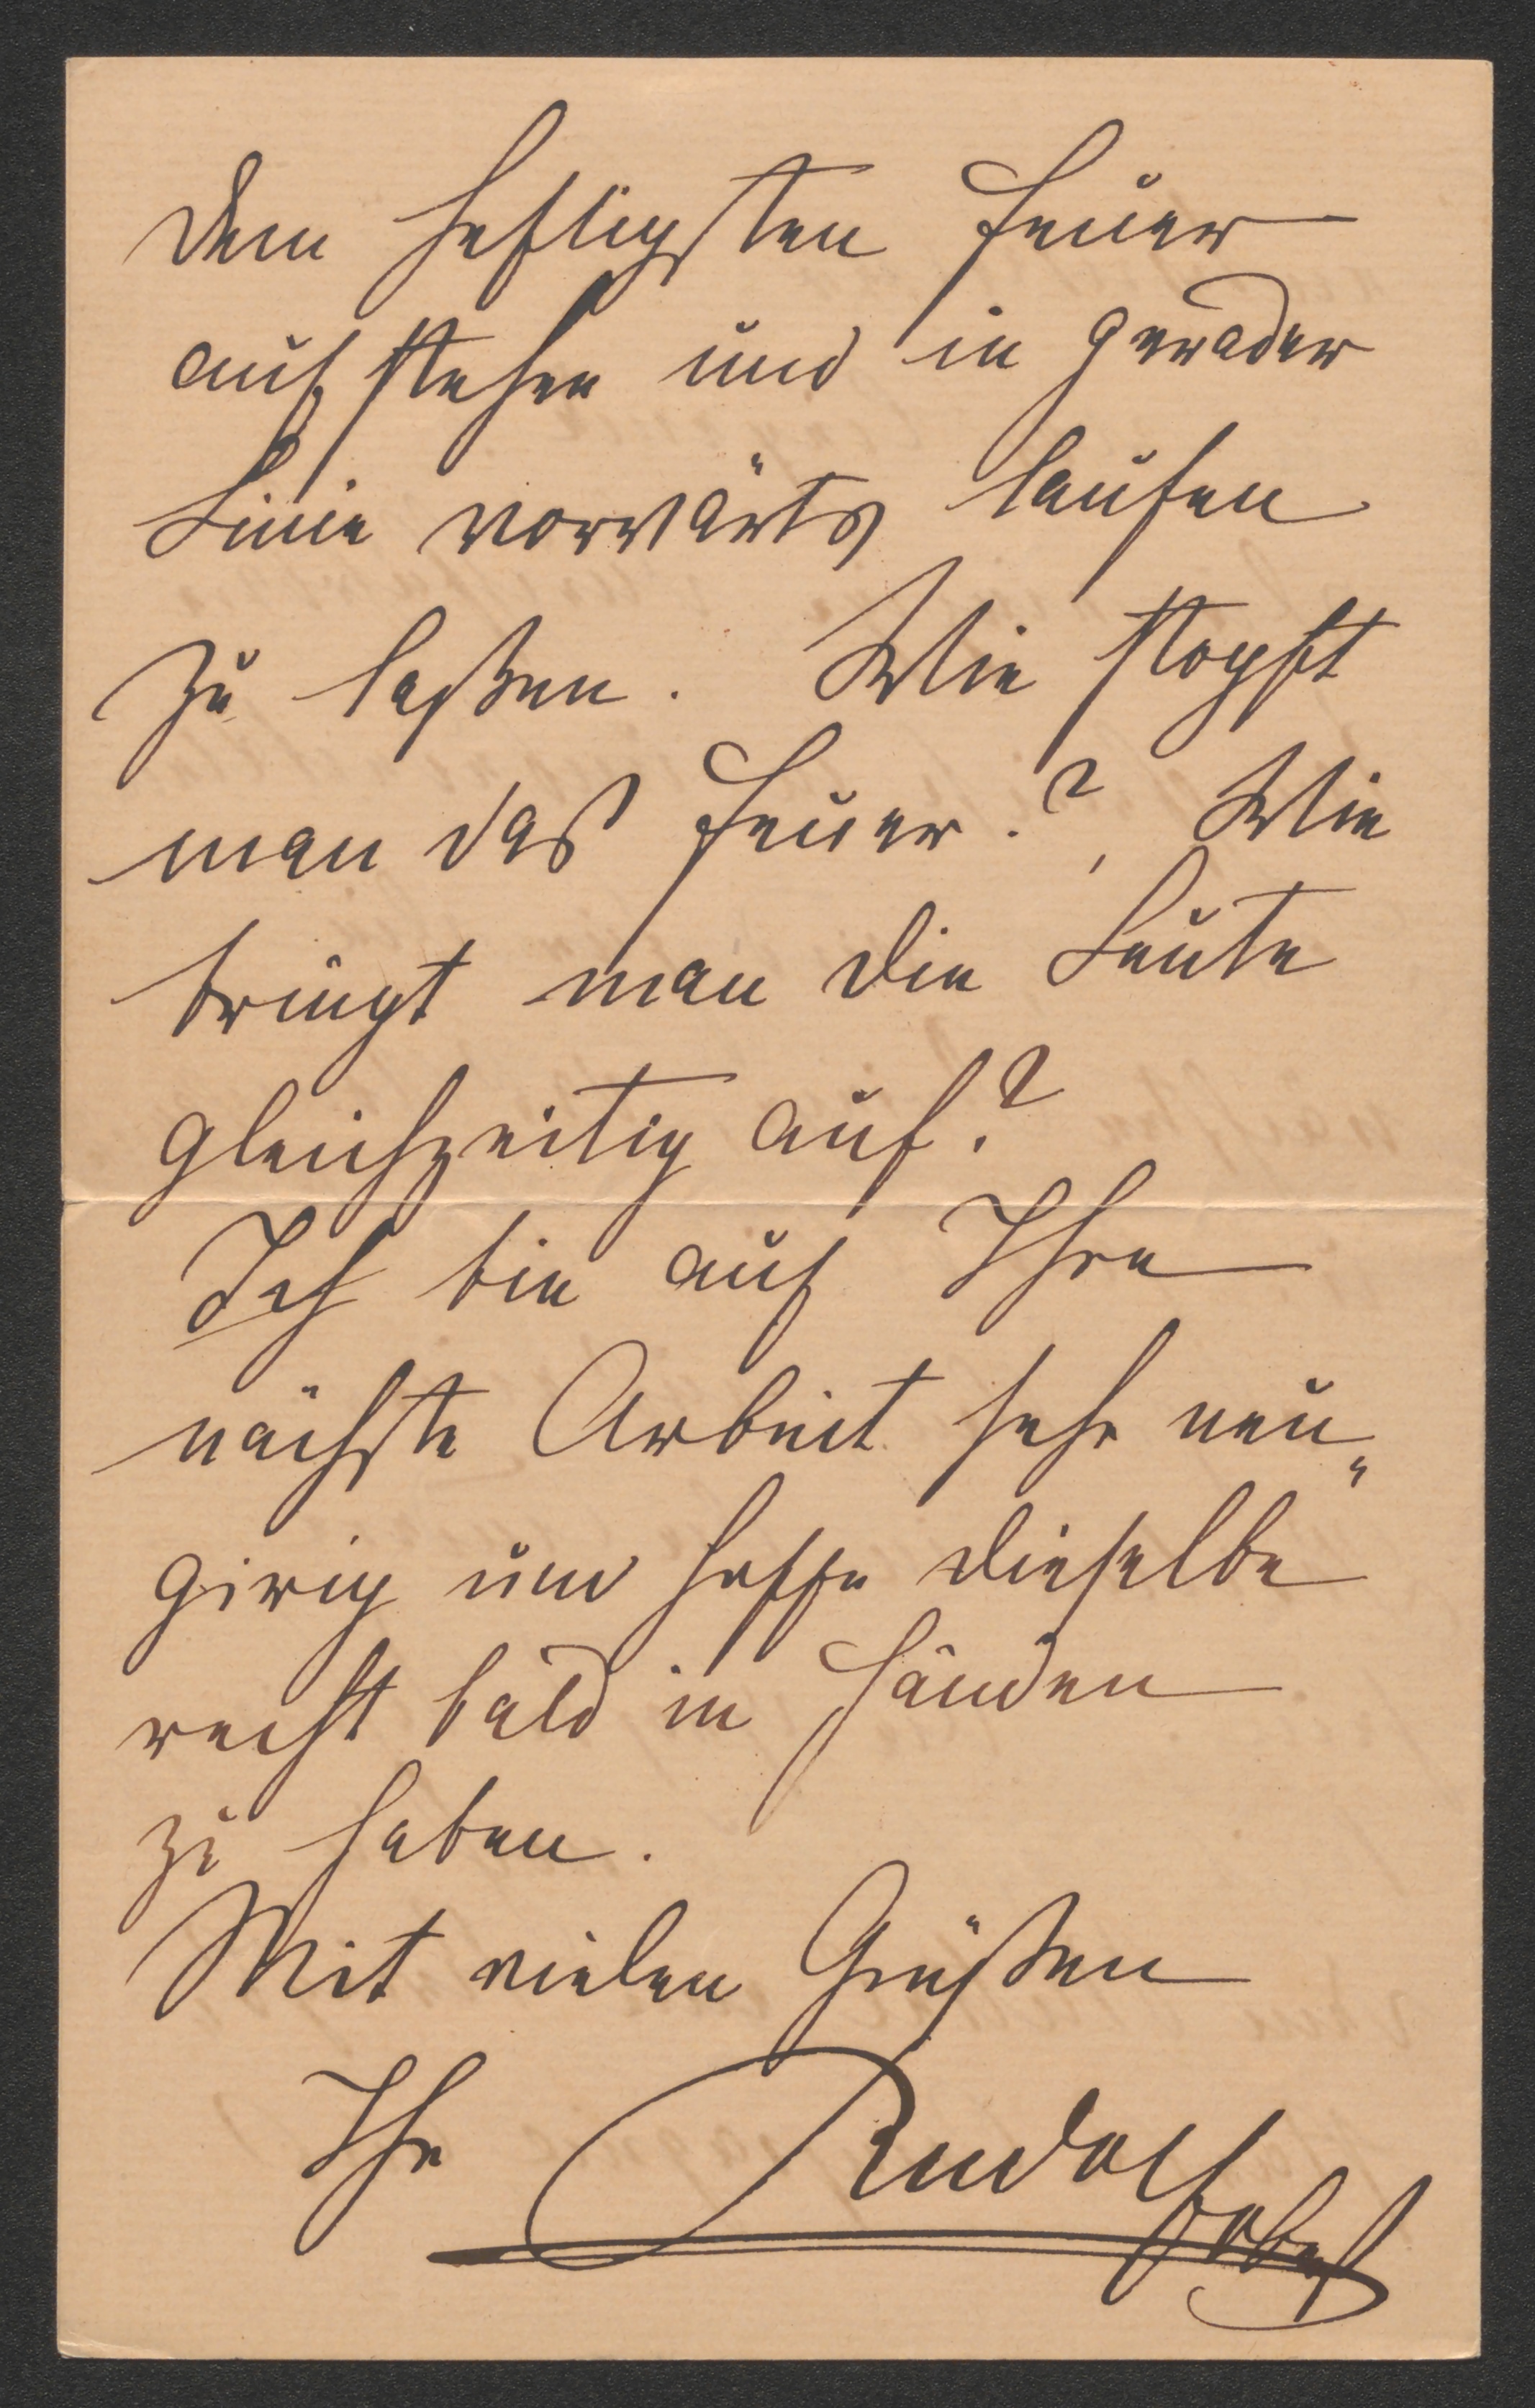 dem heftigsten Feuer
aufstehen und in gerader
Linie vorwärts laufen
zu laßen. Wie stopft
man das Feuer.?, Wie
bringt man die Leute
gleichzeitig auf?
Ich bin auf Ihre
nächste Arbeit sehr neu„
girig und hoffe dieselbe
recht bald in Händen
zu haben.
Mit vielen Grüßen
Ihr Rudolf